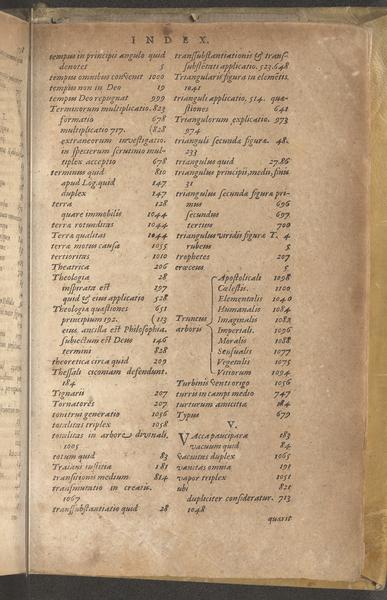 INDEX.
tempus in principis angulo quid
denotet 5
tempus omnibus convenit 1000
tempus non in Deo 19
tempus Deo repugnat 999
Terminorum multiplicatio. 823
formatio 678
multiplicatio 717. (828
extraneorum investigatio.
in spectrum scrutinio mul-
tiplex acceptio 678
terminus quid 810
apud Log. quid 147
duplex 147
terra 128
quare immobilis 1044
terra rotunditas 1044
Terra qualitas 1044
terra motus causa 1055
tertioritas 1010
Theatrica 206
Theologia 28
inspirata est 197
quid & eius applicatio 528
Theologia quæstiones 651
principium 192. (113
eius. ancilla est Philosophia.
subiectum est Deus 146
termini 828
theoretica circa quid 209
Thessali ciconiam defendunt.
184
Tignaris 207
Tornatores 207
tonitrui generatio 1056
totalitas triplex 1058
totalitas in arbore divinali,
1005
totum quid 83
Traiani iustitia 181
transitionis medium 814
transmutatio in creatis.
1067
transsubstantiatio quid 28
transsubstantiationis & trans-
substentati applicatio. 523.648
Triangularis figura in elemētis.
1041
trianguli applicatio, 514. quæ-
stiones 641
Triangulorum explicatio. 973
974
trianguli secundæ figuræ. 48.
233
triangulus quid 27.86
triangulus principii, medii, finis
31
triangulus secundæ figuræ pri-
mus 696
secundus 697
tertius 700
triangulus viridis figuræ T. 4
rubeus 5
trophetes 207
croceus 5
Truncus
arboris
Apostolicali 1098
Cœlestis. 1100
Elementalis 1040
Humanalis 1084
Imaginalis 1082
Imperiali. 1096
Moralis 1088
Sensualis 1077
Vegetalis 1075
Vittorum 1094
Turbinis venti origo 1056
turris in campi medio 747
turturum amicitia 184
Typus 679
V.
VAcca paucipara 183
vacuum quid 84
vacuitas duplex 1065
vanitas omnia 191
vapor triplex 1051
ubi 821
dupliciter consideratur. 713
1048
quaris